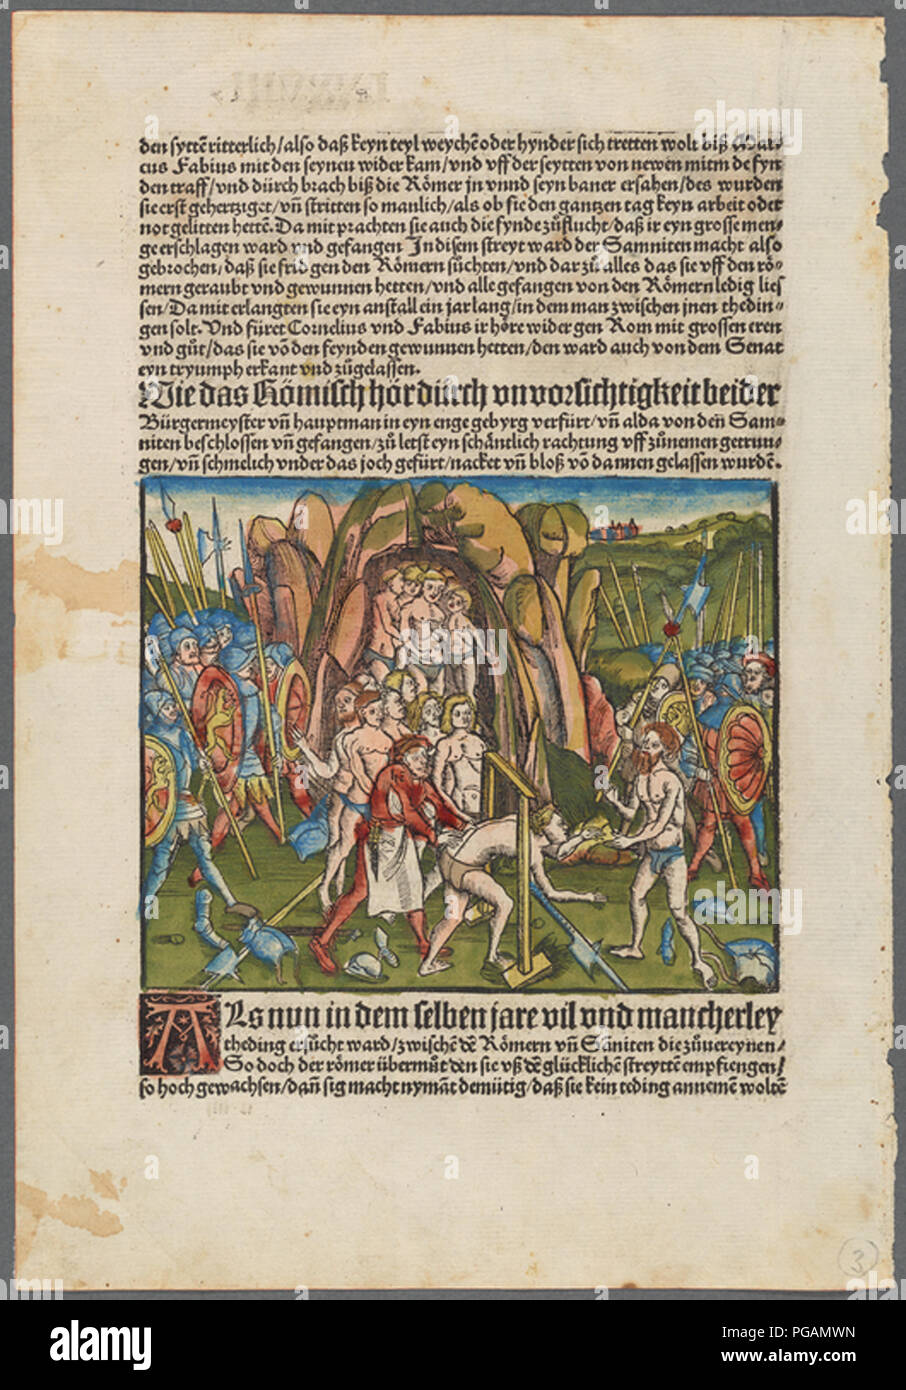 den syttē ritterlich/also daß keyn teyl weychē oder hynder sich tretten wolt biß Mar⸗
cus Fabius mit den seynen wider kam/vnd vff der seytten von newen mitm de fyn
den traff/vnd dürch brach biß die Römer jn vnnd seyn baner ersahen/des wurden
sie erst gehertziget/vn̄ stritten so manlich/als ob sie den gantzen tag keyn arbeit oder
not gelitten hettē. Da mit prachten sie auch die fynde zůflucht/daß ir eyn grosse men⸗
ge erschlagen ward vnd gefangen In disem streyt ward der Samniten macht also
gebrochen/daß sie frid gen den Römern sůchten/vnd dar zů alles das sie vff den rö⸗
mern geraubt vnd gewunnen hetten/vnd alle gefangen von den Römern ledig lies
sen/Da mit erlangten sie eyn anstall ein jar lang/in dem man zwischen jnen theding⸗
gen solt. Vnd füret Cornelius vnd Fabius ir höre wider gen Rom mit grossen eren
vnd gůt/das sie vō den feynden gewunnen hetten/den ward auch von dem Senat
eyn tryumph erkant vnd zůgelassen.
Wie das Römisch hör dürch vnvorsichtigkeit beider
Bürgermeyster vn̄ hauptman in eyn enge gebyrg verfürt/vn̄ alda von den Sam⸗
niten beschlossen vn̄ gefangen/zů letst eyn schäntlich rachtung vff zůnemen getrun⸗
gen/vn̄ schmelich vnder das joch gefürt/nacket vn̄ bloß vō dannen gelassen wurdē.
ALs nun in dem selben jare vil vnd mancherley
theding ersůcht ward/zwischē dē Römern vn̄ Sāniten die zůuereynen/
So doch der römer übermůt den sie vß dē glücklichē streyttē empfiengen/
so hoch gewachsen/dan̄ sig macht nymāt demütig/daß sie kein teding annemē woltē
3
alamy
Image ID: PGAMWN
www.alamy.com